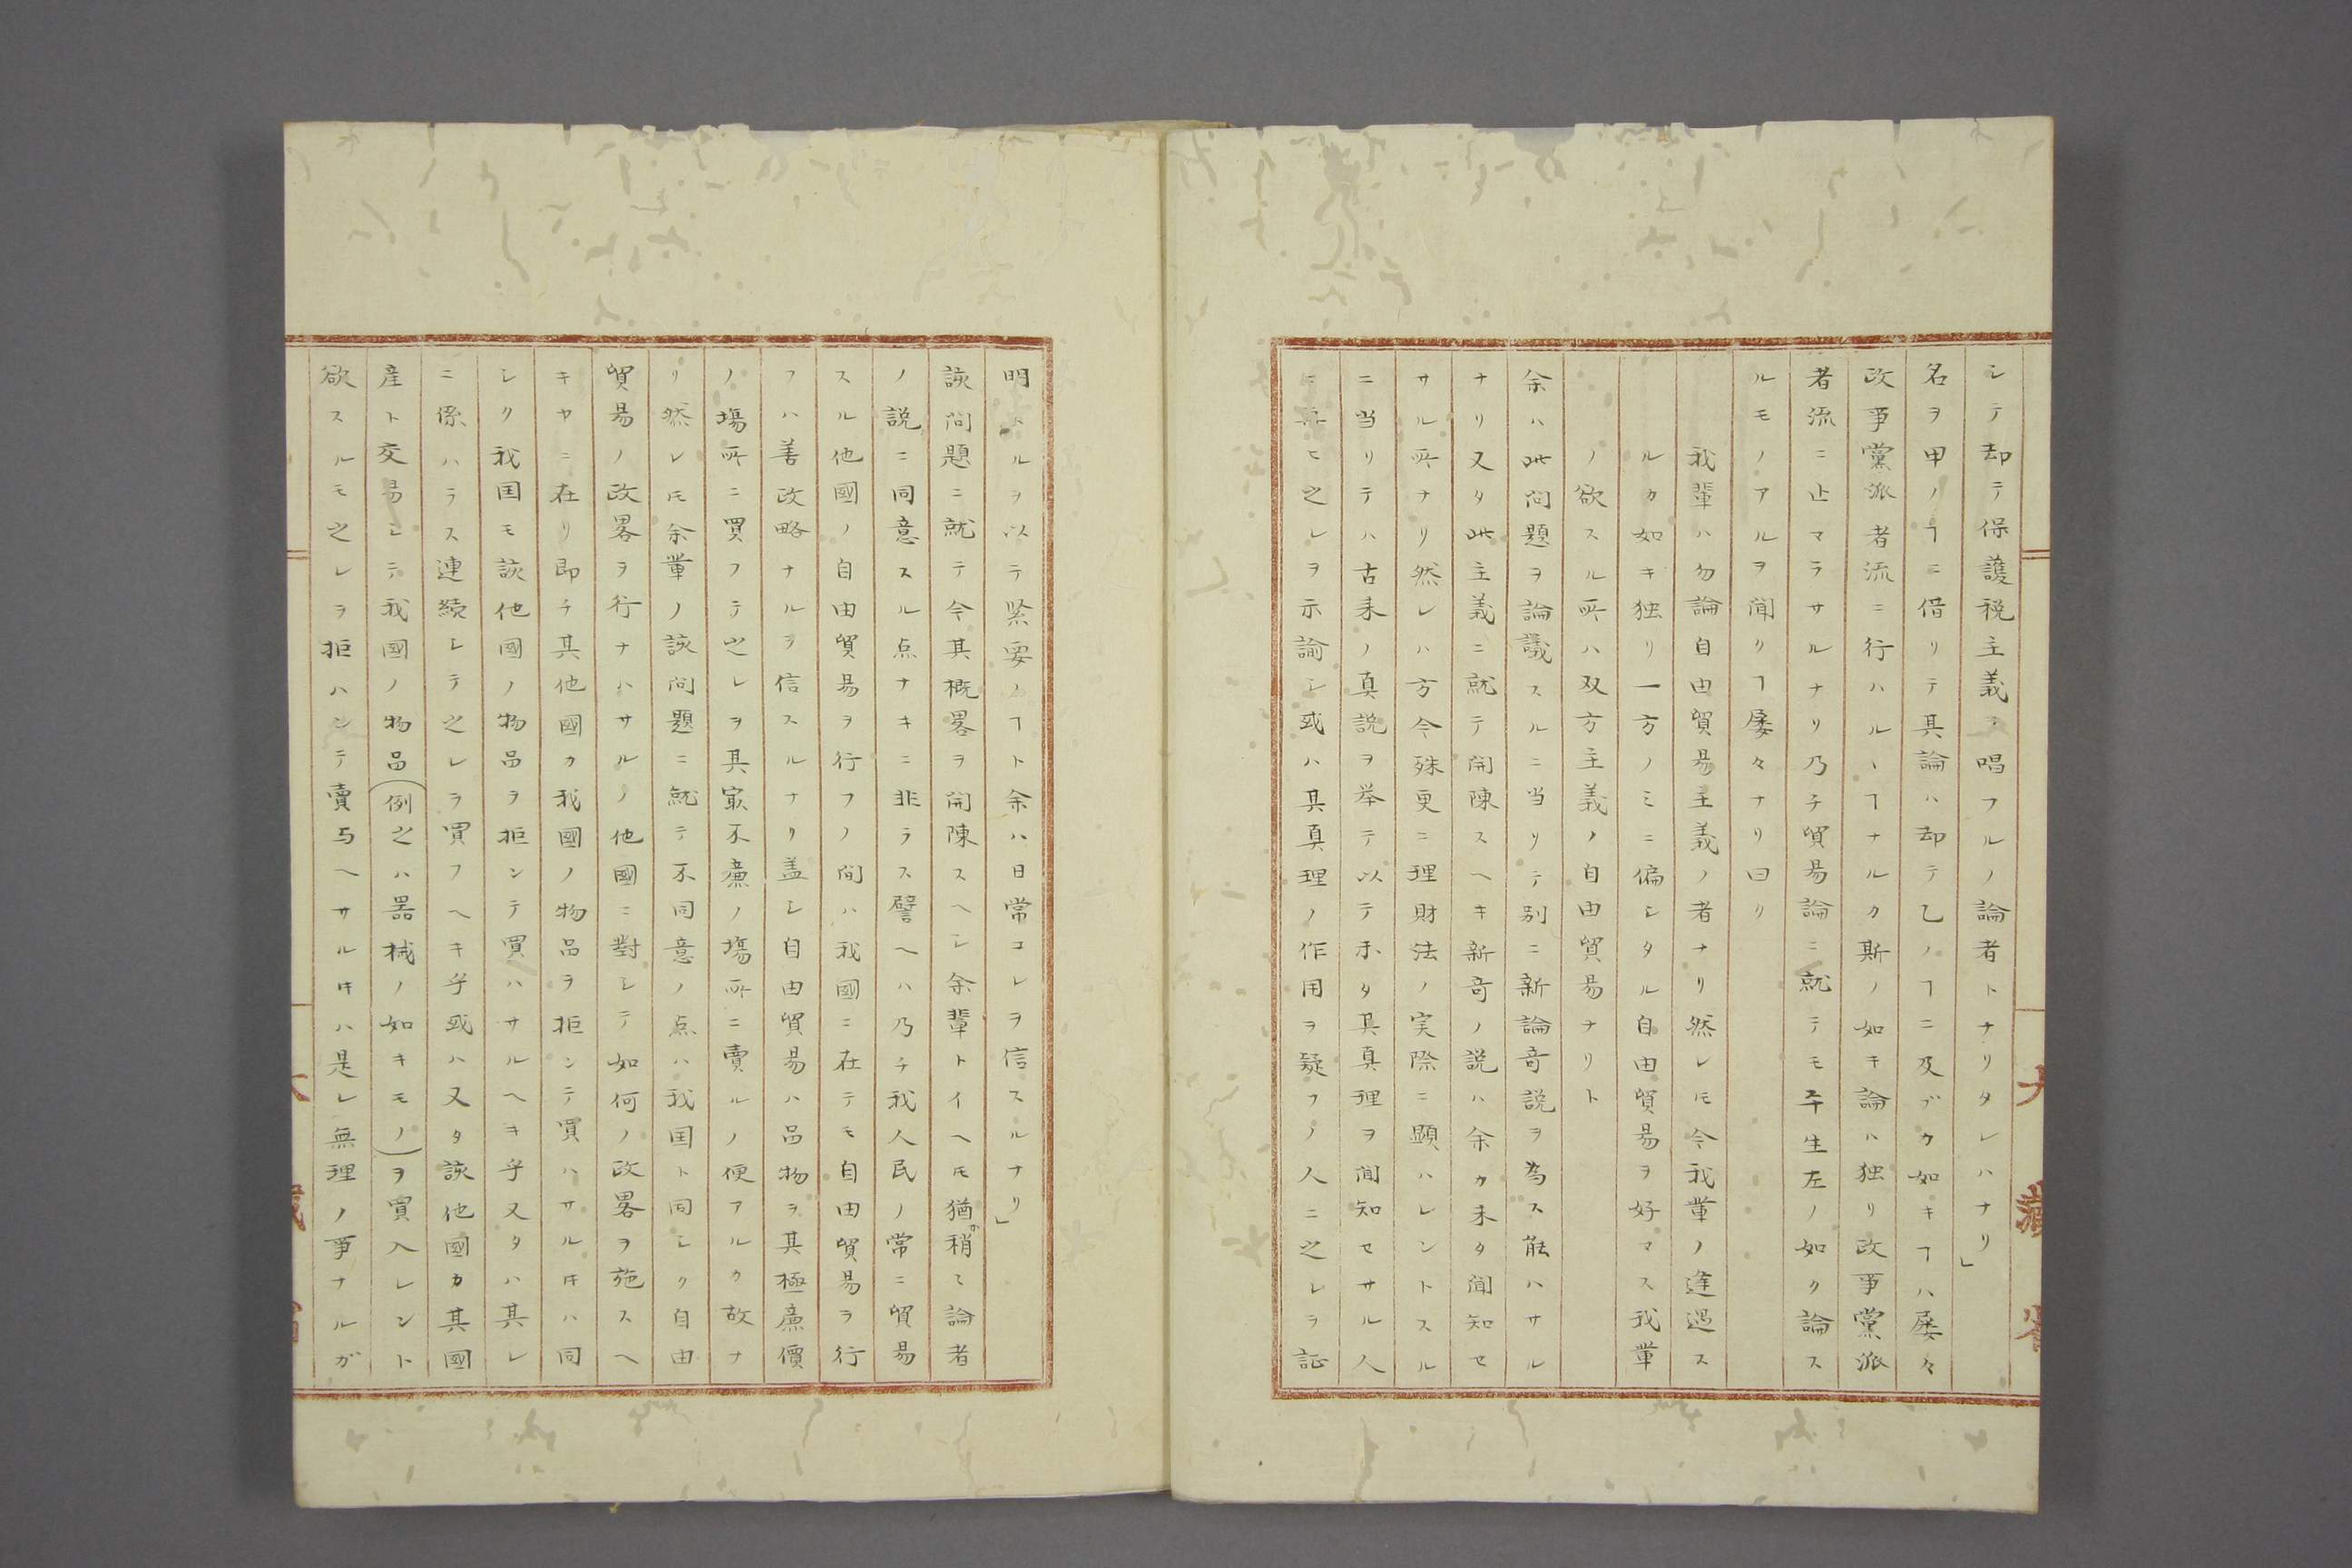 シテ却テ保護税主義ヲ唱フルノ論者トナリタレハナリ」
名ヲ甲ノヿニ借リテ其論ハ却テ乙ノヿニ及ブカ如キヿハ屡々
政事黨派者流ニ行ハルヽヿナルカ斯ノ如キ論ハ独リ政事黨派
者流ニ止マラサルナリ乃チ貿易論ニ就テモ平生左ノ如ク論ス
ルモノアルヲ聞クヿ屡々ナリ曰ク
我輩ハ勿論自由貿易主義ノ者ナリ然レ𪜈今我輩ノ逢遇ス
ルカ如キ独リ一方ノミニ偏シタル自由貿易ヲ好マス我輩
ノ欲スル所ハ双方主義ノ自由貿易ナリト
余ハ此问題ヲ論議スルニ当リテ別ニ新論奇説ヲ為ス能ハサル
ナリ又タ此主義ニ就テ開陳スヘキ新奇ノ説ハ余カ未タ聞知セ
サル所ナリ然レハ方今殊更ニ理財法ノ実際ニ顕ハレントスル
ニ当リテハ古来ノ真説ヲ挙テ以テ未タ其真理ヲ聞知セサル人
ニ再ヒ之レヲ示諭シ或ハ其真理ノ作用ヲ疑フノ人ニ之レヲ証
明スルヲ以テ緊要ノヿト余ハ日常コレヲ信スルナリ」
該问題ニ就テ今其概畧ヲ開陳スヘシ余輩トイヘ𪜈猶ホ稍ミ論者
ノ説ニ同意スル点ナキニ非ラス譬ヘハ乃チ我人民ノ常ニ貿易
スル他國ノ自由貿易ヲ行フノ间ハ我國ニ在テモ自由貿易ヲ行
フハ善政略ナルヲ信スルナリ盖シ自由貿易ハ品物ヲ其極廉價
ノ塲所ニ買フテ之レヲ其㝡不廉ノ塲所ニ賣ルノ便アルカ故ナ
リ然レ𪜈余輩ノ該问題ニ就テ不同意ノ点ハ我国ト同シク自由
貿易ノ政畧ヲ行ナハサルノ他國ニ對シテ如何ノ政畧ヲ施スヘ
キヤニ在リ即チ其他國カ我國ノ物品ヲ拒ンテ買ハサル𪜈ハ同
シク我国モ該他國ノ物品ヲ拒ンテ買ハサルヘキ乎又タハ其レ
ニ係ハラス連續シテ之レヲ買フヘキ乎或ハ又タ該他國カ其國
産ト交易シテ我國ノ物品(例之ハ器械ノ如キモノ)ヲ買入レント
欲スルモ之レヲ拒ハンテ賣与ヘサル𪜈ハ是レ無理ノ事ナルガ
大藏省